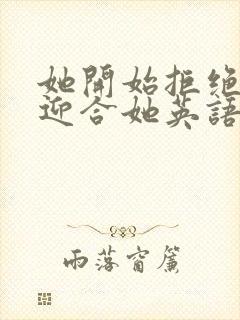 她開始拒絕
迎合她英語
雨落窗簾